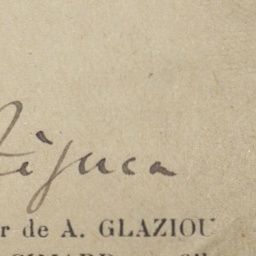 Tijuca
r de A. GLAZIOU